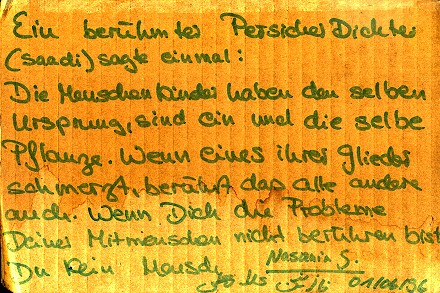 Ein berühmter Persicher Dichter
(saadi) sagte einmal:
Die Menschenkinder haben den selben
Ursprung, sind ein und die selbe
Pflanze. Wenn eines ihrer Glieder
schmerzt, berührt das alle andere
auch. Wenn Dich die Probleme
Deiner Mitmenschen nicht berühren bist
Du kein Mensch
Nasanin S.
01/06/96